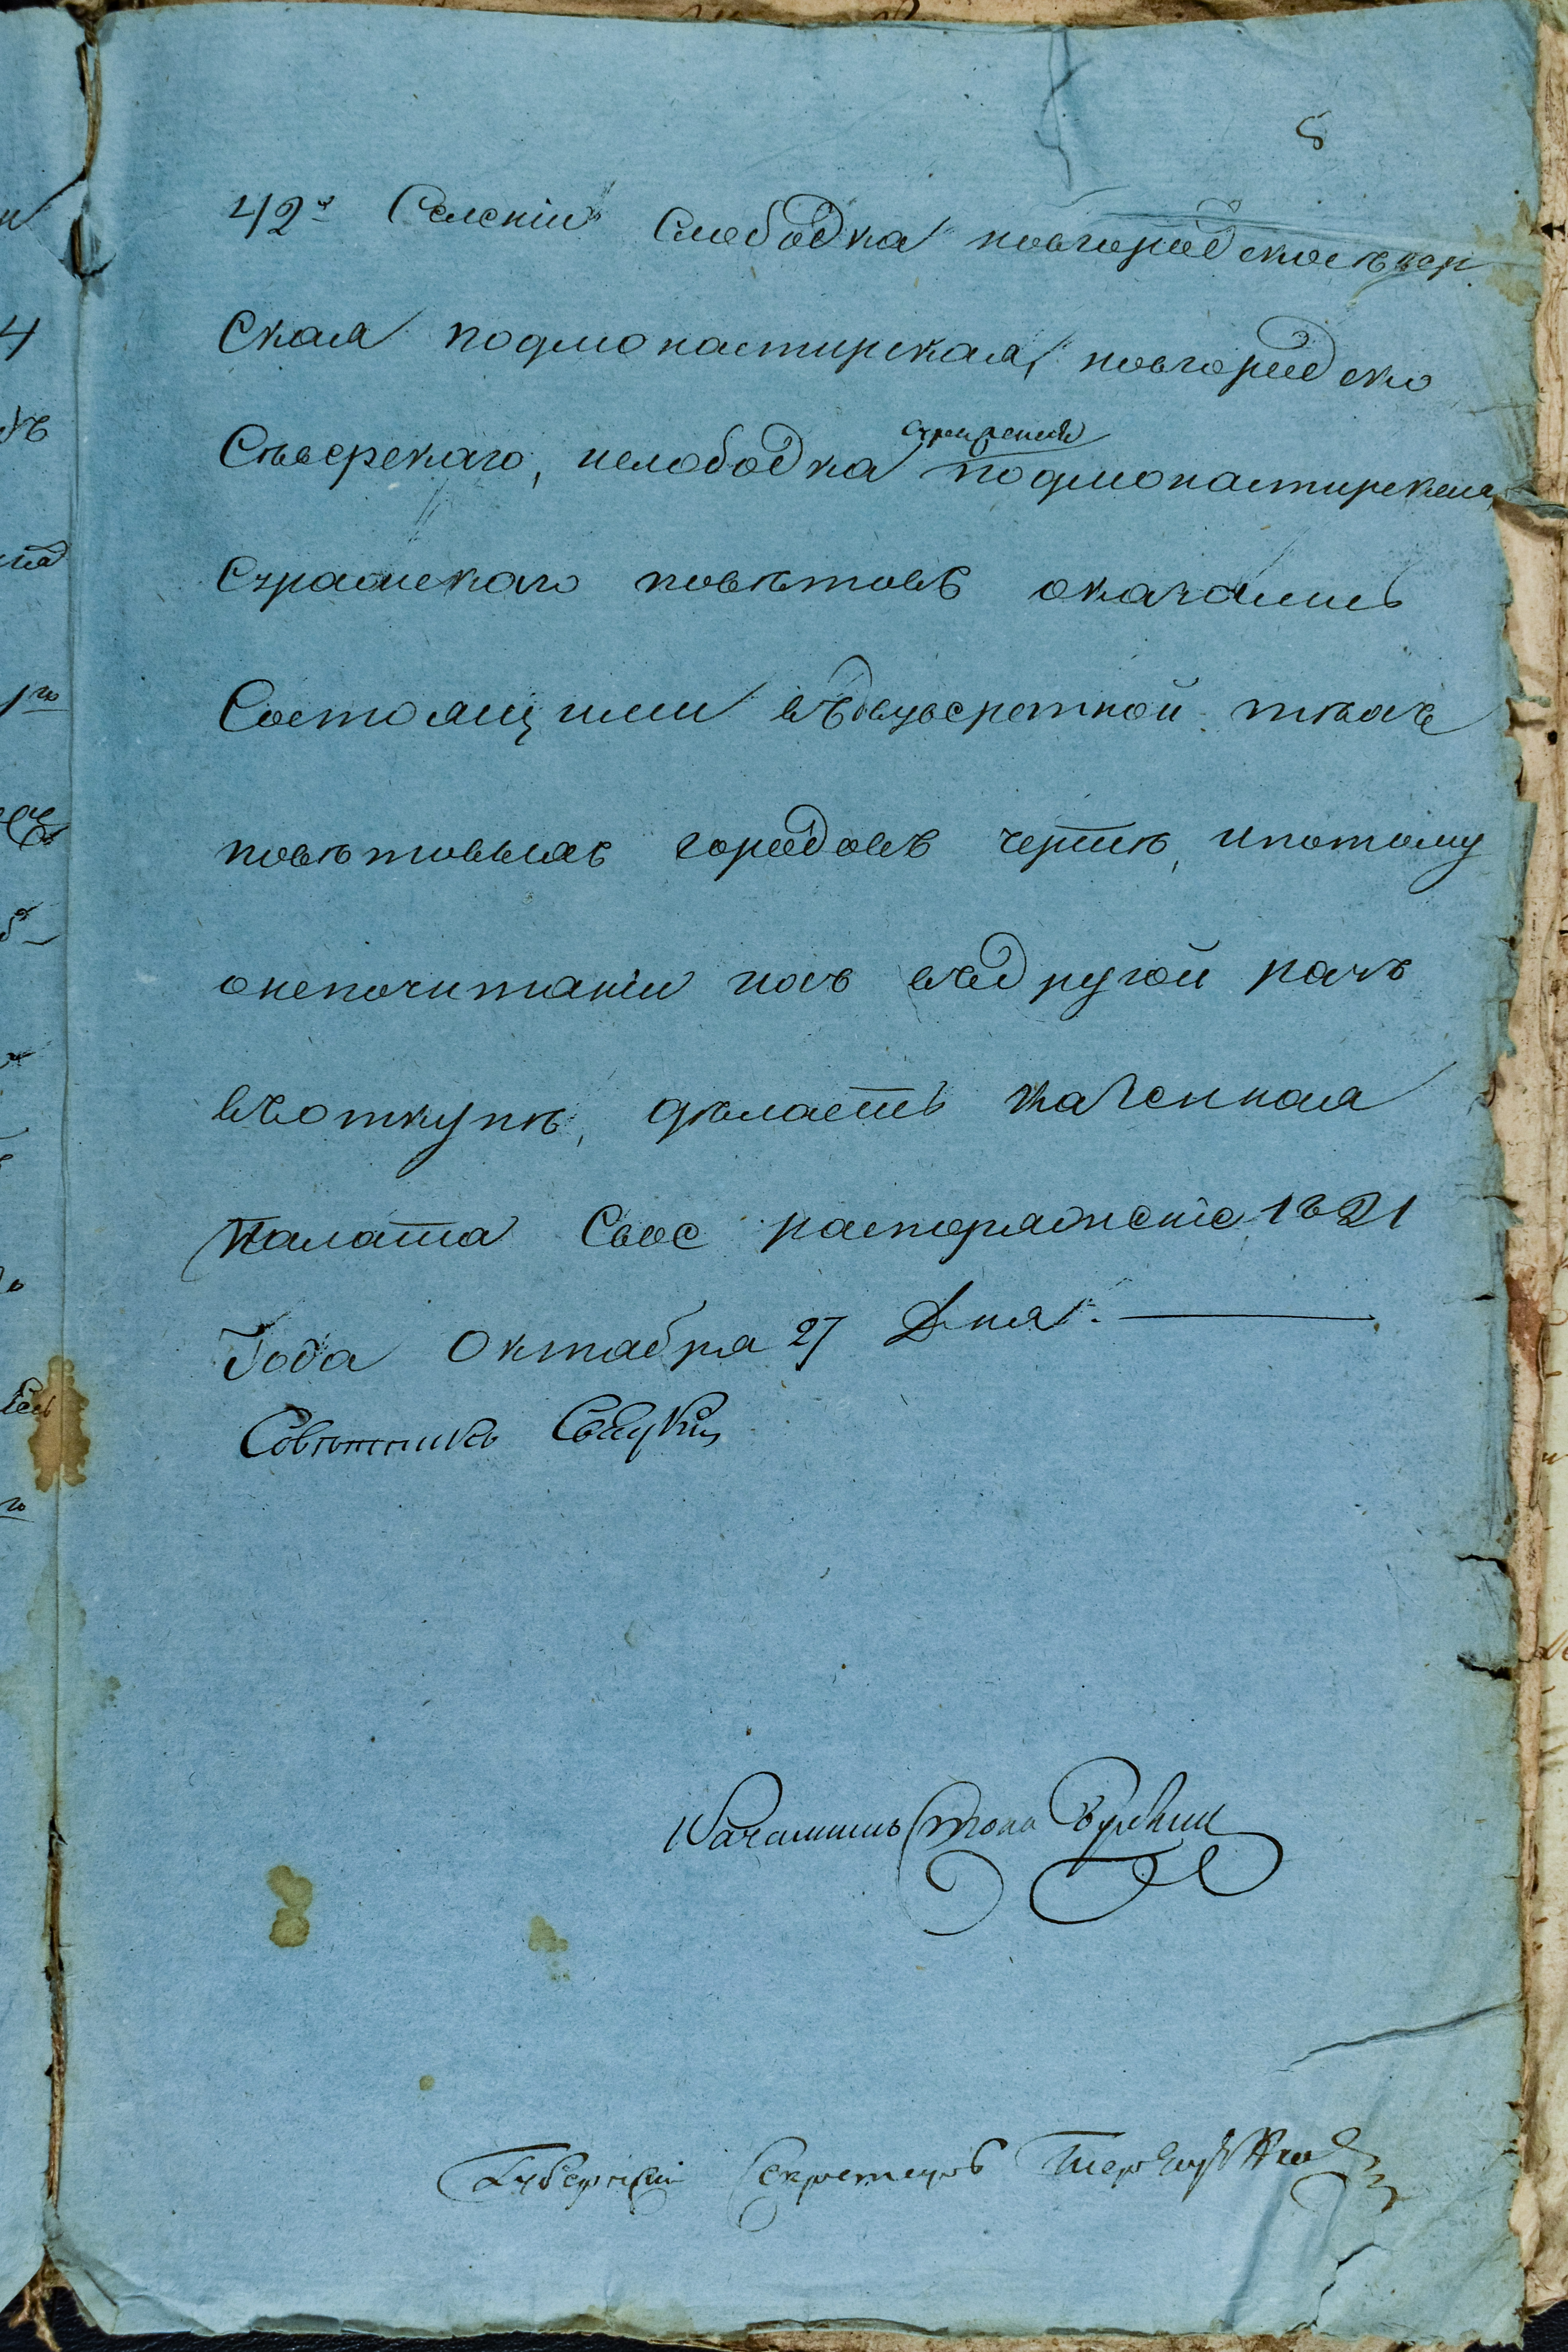 8
42хъ Селеніи Слободка новгородскосѣвер
ская подмонастирская, новгородско
Сѣверскаго, ислободка подмонастирская,
Суражскаго повѣтовъ оказались
Состоящими въдвуверстной тѣхъ
повѣтовыхъ городовъ чертѣ, ипотому
онепочитаніи ихъ въдругой разъ
въоткупѣ, дѣлаетъ Казенная
Палата Свое распоряженіе, 1821
Года Октября 27 Дня. —
Совѣтникъ
Началникъ Стола
Губернский Секретарь